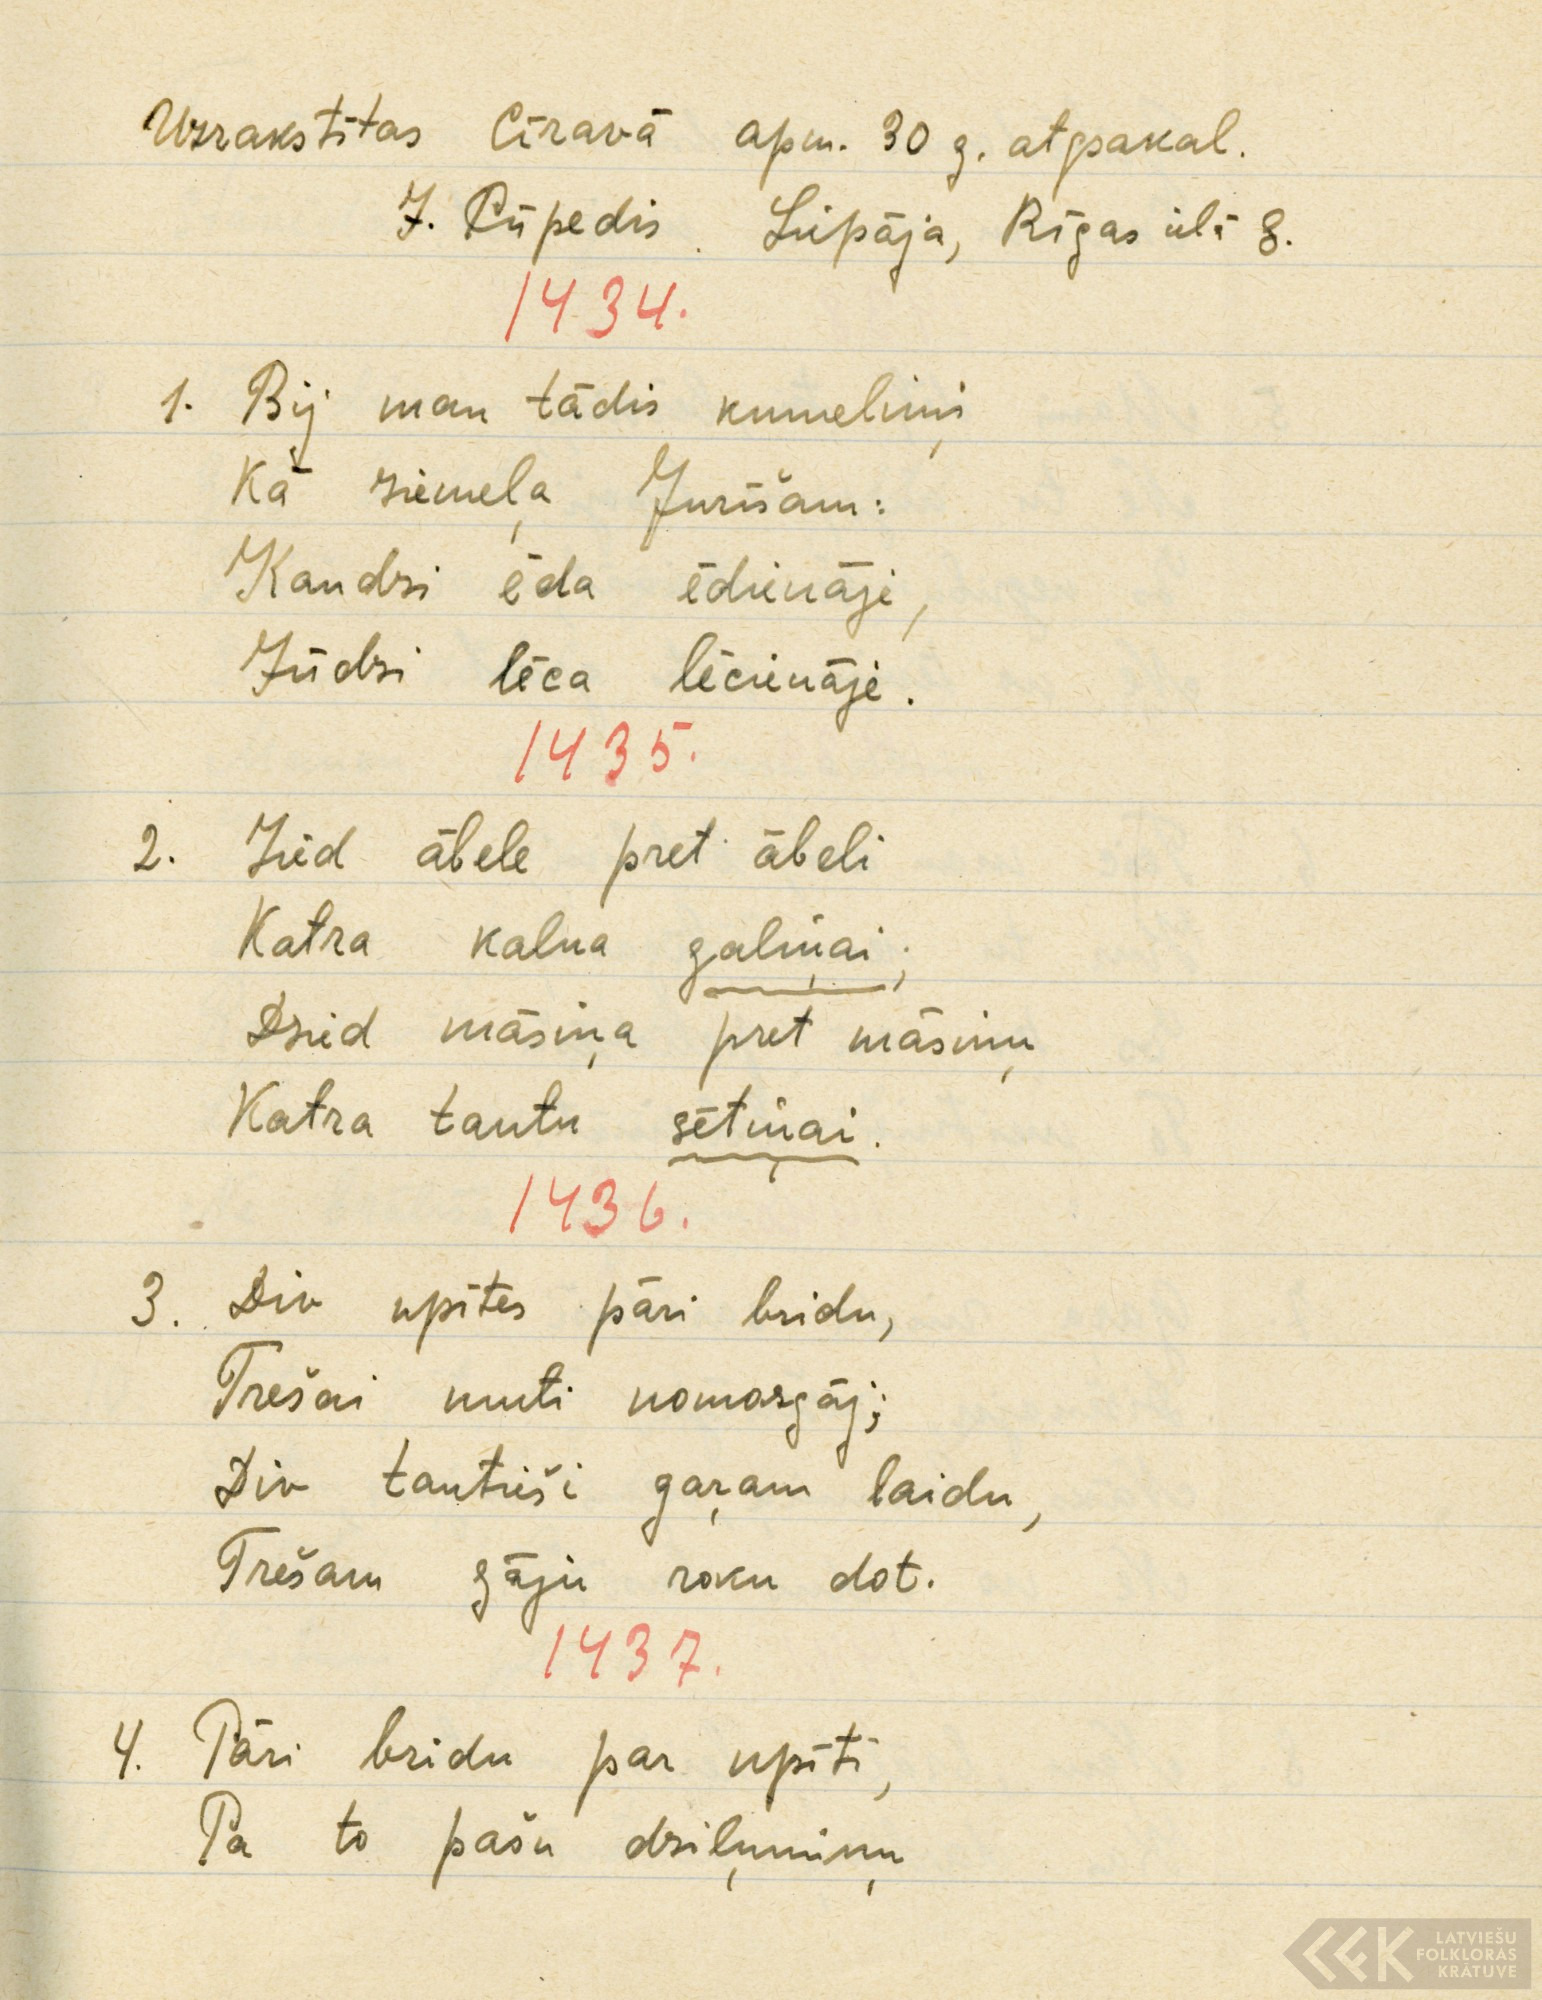 Uzrakstītas Cīravā apm. 30 g. atpakaļ.
J. Cūpedis Liepāja, Rīgas ielā 8.
1434.
1. Bij man tādis kumeliņi
Kā ziemeļa
Kaudzi ēda ēdienāji,
Jūdzi lēca lēcienāji.
1435.
2. Zied ābele pret ābeli
Katra kalna galiņai;
Dzied māsiņa pret māsiņu
Katra tautu sētiņai.
1436.
3. Div upītes pāri bridu,
Trešai muti nomazgāj;
Div tautieši gaŗam laidu,
Trešam gāju roku dot.
1437.
4. Pāri bridu par upīti,
Pa to pašu dziļumiņu
LATVIEŠU
FOLKLORAS
KRĀTUVE